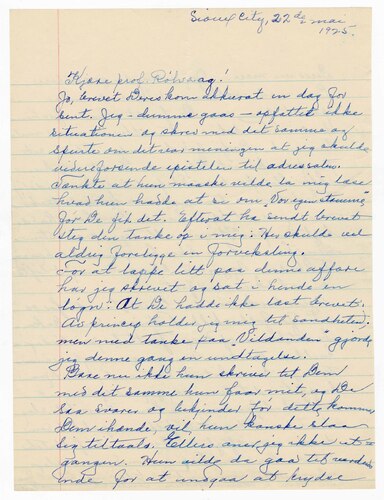 Sioux City, 22de mai
1925.
Kjære prof. Rölvaag!
Jo, brevet Deres kom akkurat en dag for
sent. Jeg - dumme gaas - opfattet ikke
situationen og skrev med det samme og
spurte om det var meningen at jeg skulde
videreforsende epistelen til adressaten.
Tænkte at hun maaske vilde la mig læse
hvad hun hadde at si om "Vor egen stamme"
før De fik det. Efterat ha sendt brevet
steg den tanke op i mig: Her skulde vel
aldrig foreligge en forveksling.
For at lappe litt paa denne affære
har jeg skrevet og sat i hende en
løgn: At De hadde ikke læst brevet.
Av princip holder jeg mig til sandheten,
men med tanke paa "Vildanden" gjorde
jeg denne gang en undtagelse.
Bare nu ikke hun skriver til Dem
med det samme hun faar mit, og De
saa svarer og bekjender før dette kommer
Dem ihænde, vil hun kanske slaa
sig tiltaals. Ellers aner jeg ikke
gangen. Hun vilde da gaa til verdens
ende for at undgaa at krydse